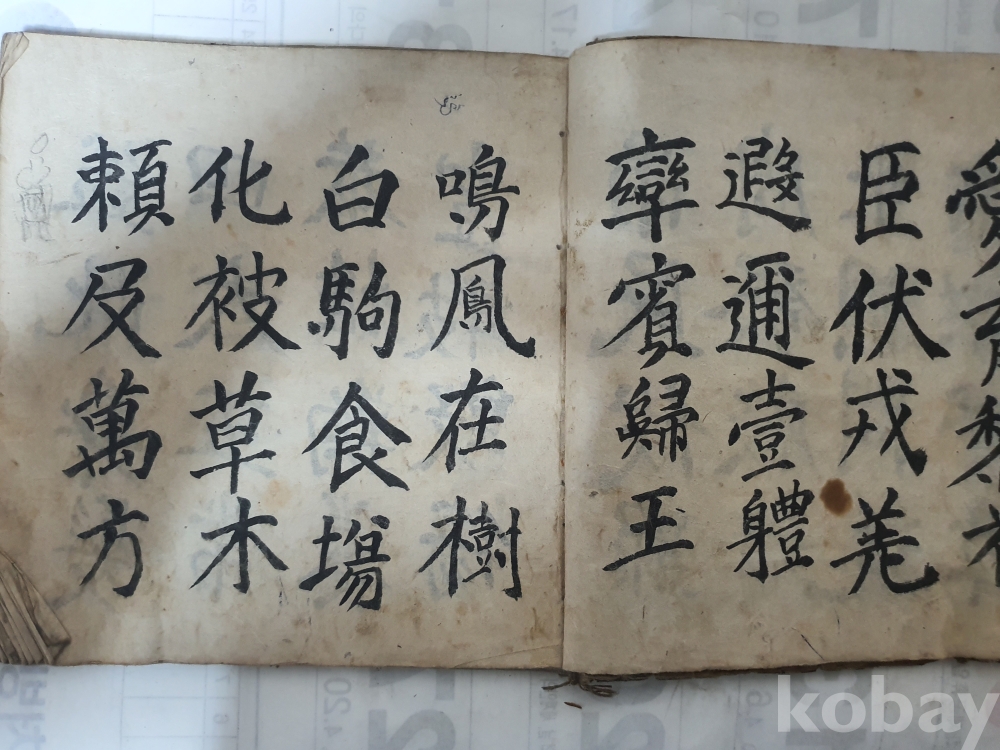 愛育黎首
臣伏戎羌
遐邇壹體
率賓歸王
鳴鳳在樹
白駒食塲
化被草木
頼及萬方
kobay